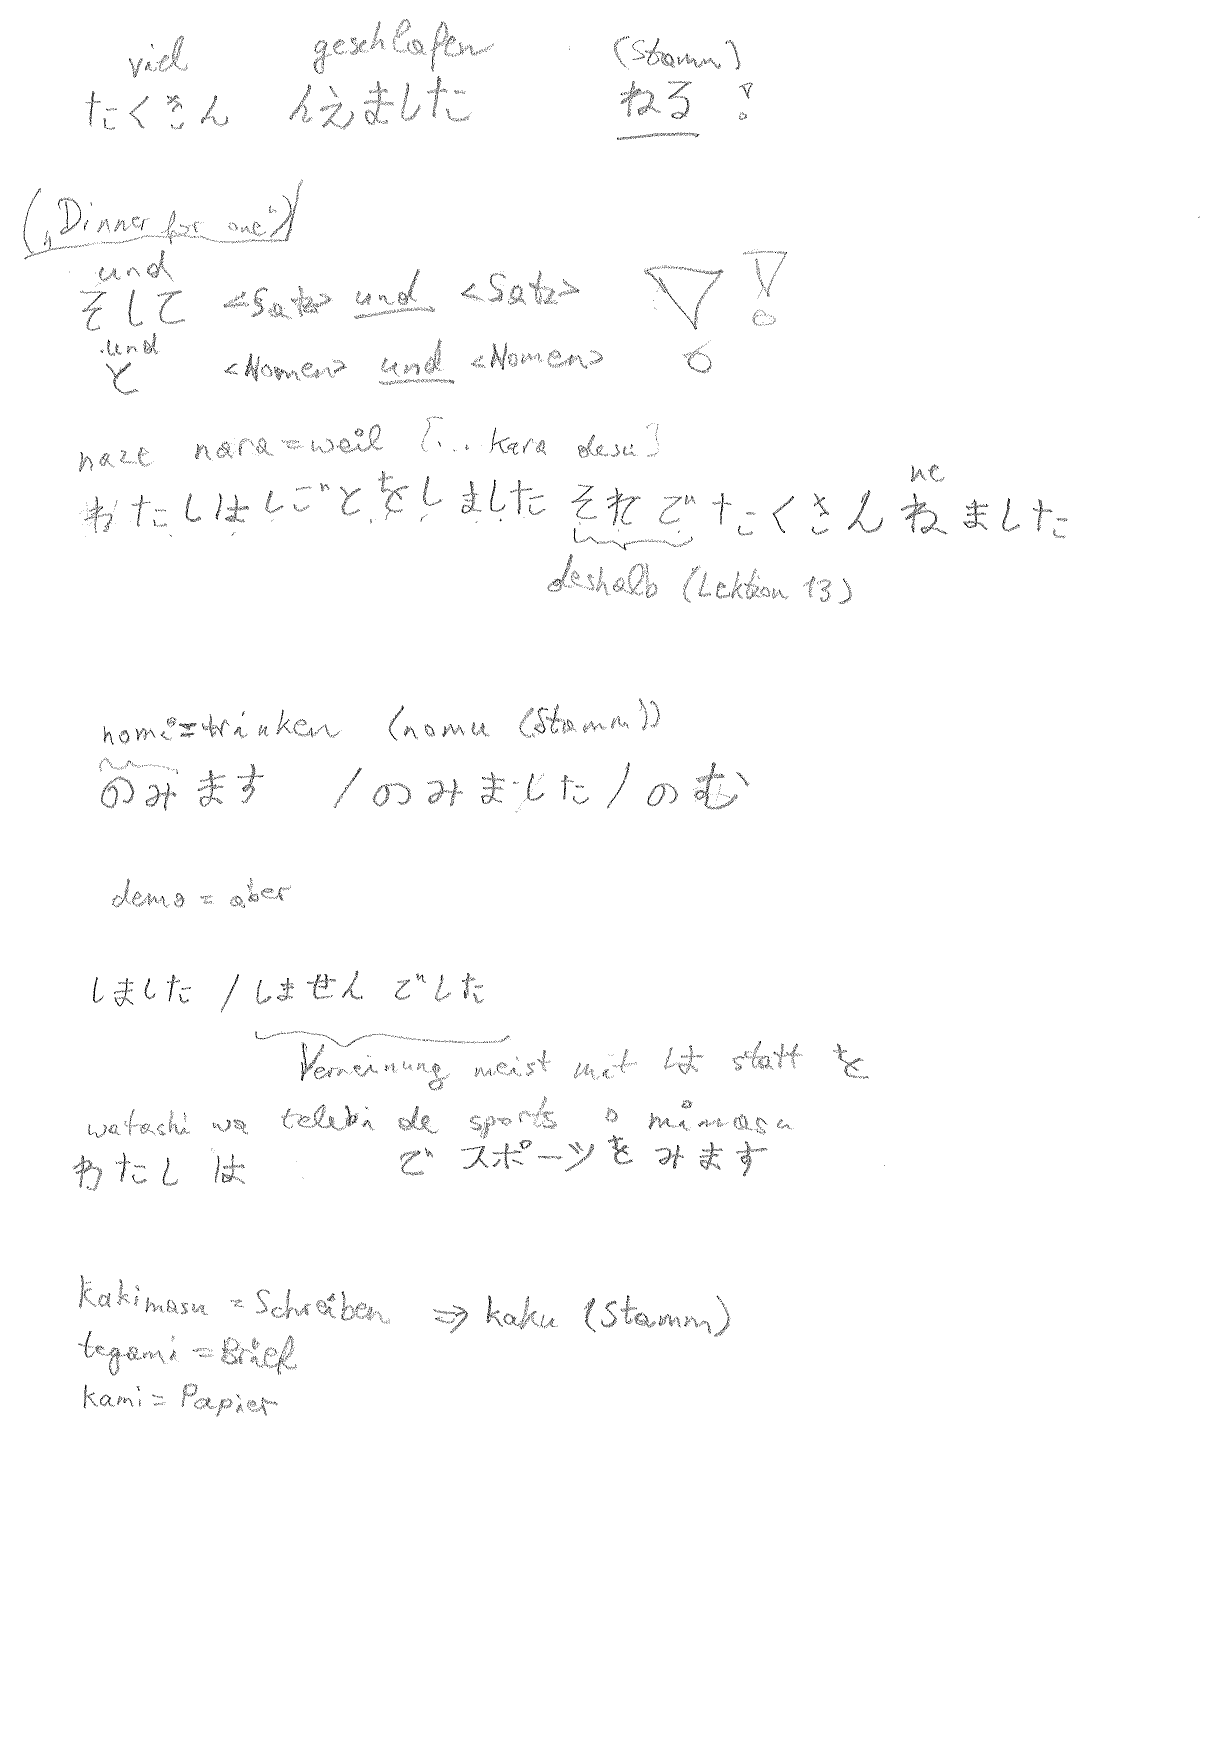 viel geschlafen (Stamm)
たくさん んえました ねる !
("Dinner for one")
und
そして <Satz> und <Satz> !
und
と <Nomen> und <Nomen>
naze nara = weil [... kara desu]
ne
わたしはしごとをしました それで たくさん ねました
deshalb (Lektion 13)
nomi = trinken (nomu (Stamm))
のみます / のみました / のむ
demo = aber
しました / しません でした
Verneinung meist mit は statt を
watashi wa telebi de sports o mimasu
わたし は で スポーツ を みます
kakimasu = Schreiben ⇒ kaku (Stamm)
tegami = Brief
kami = Papier